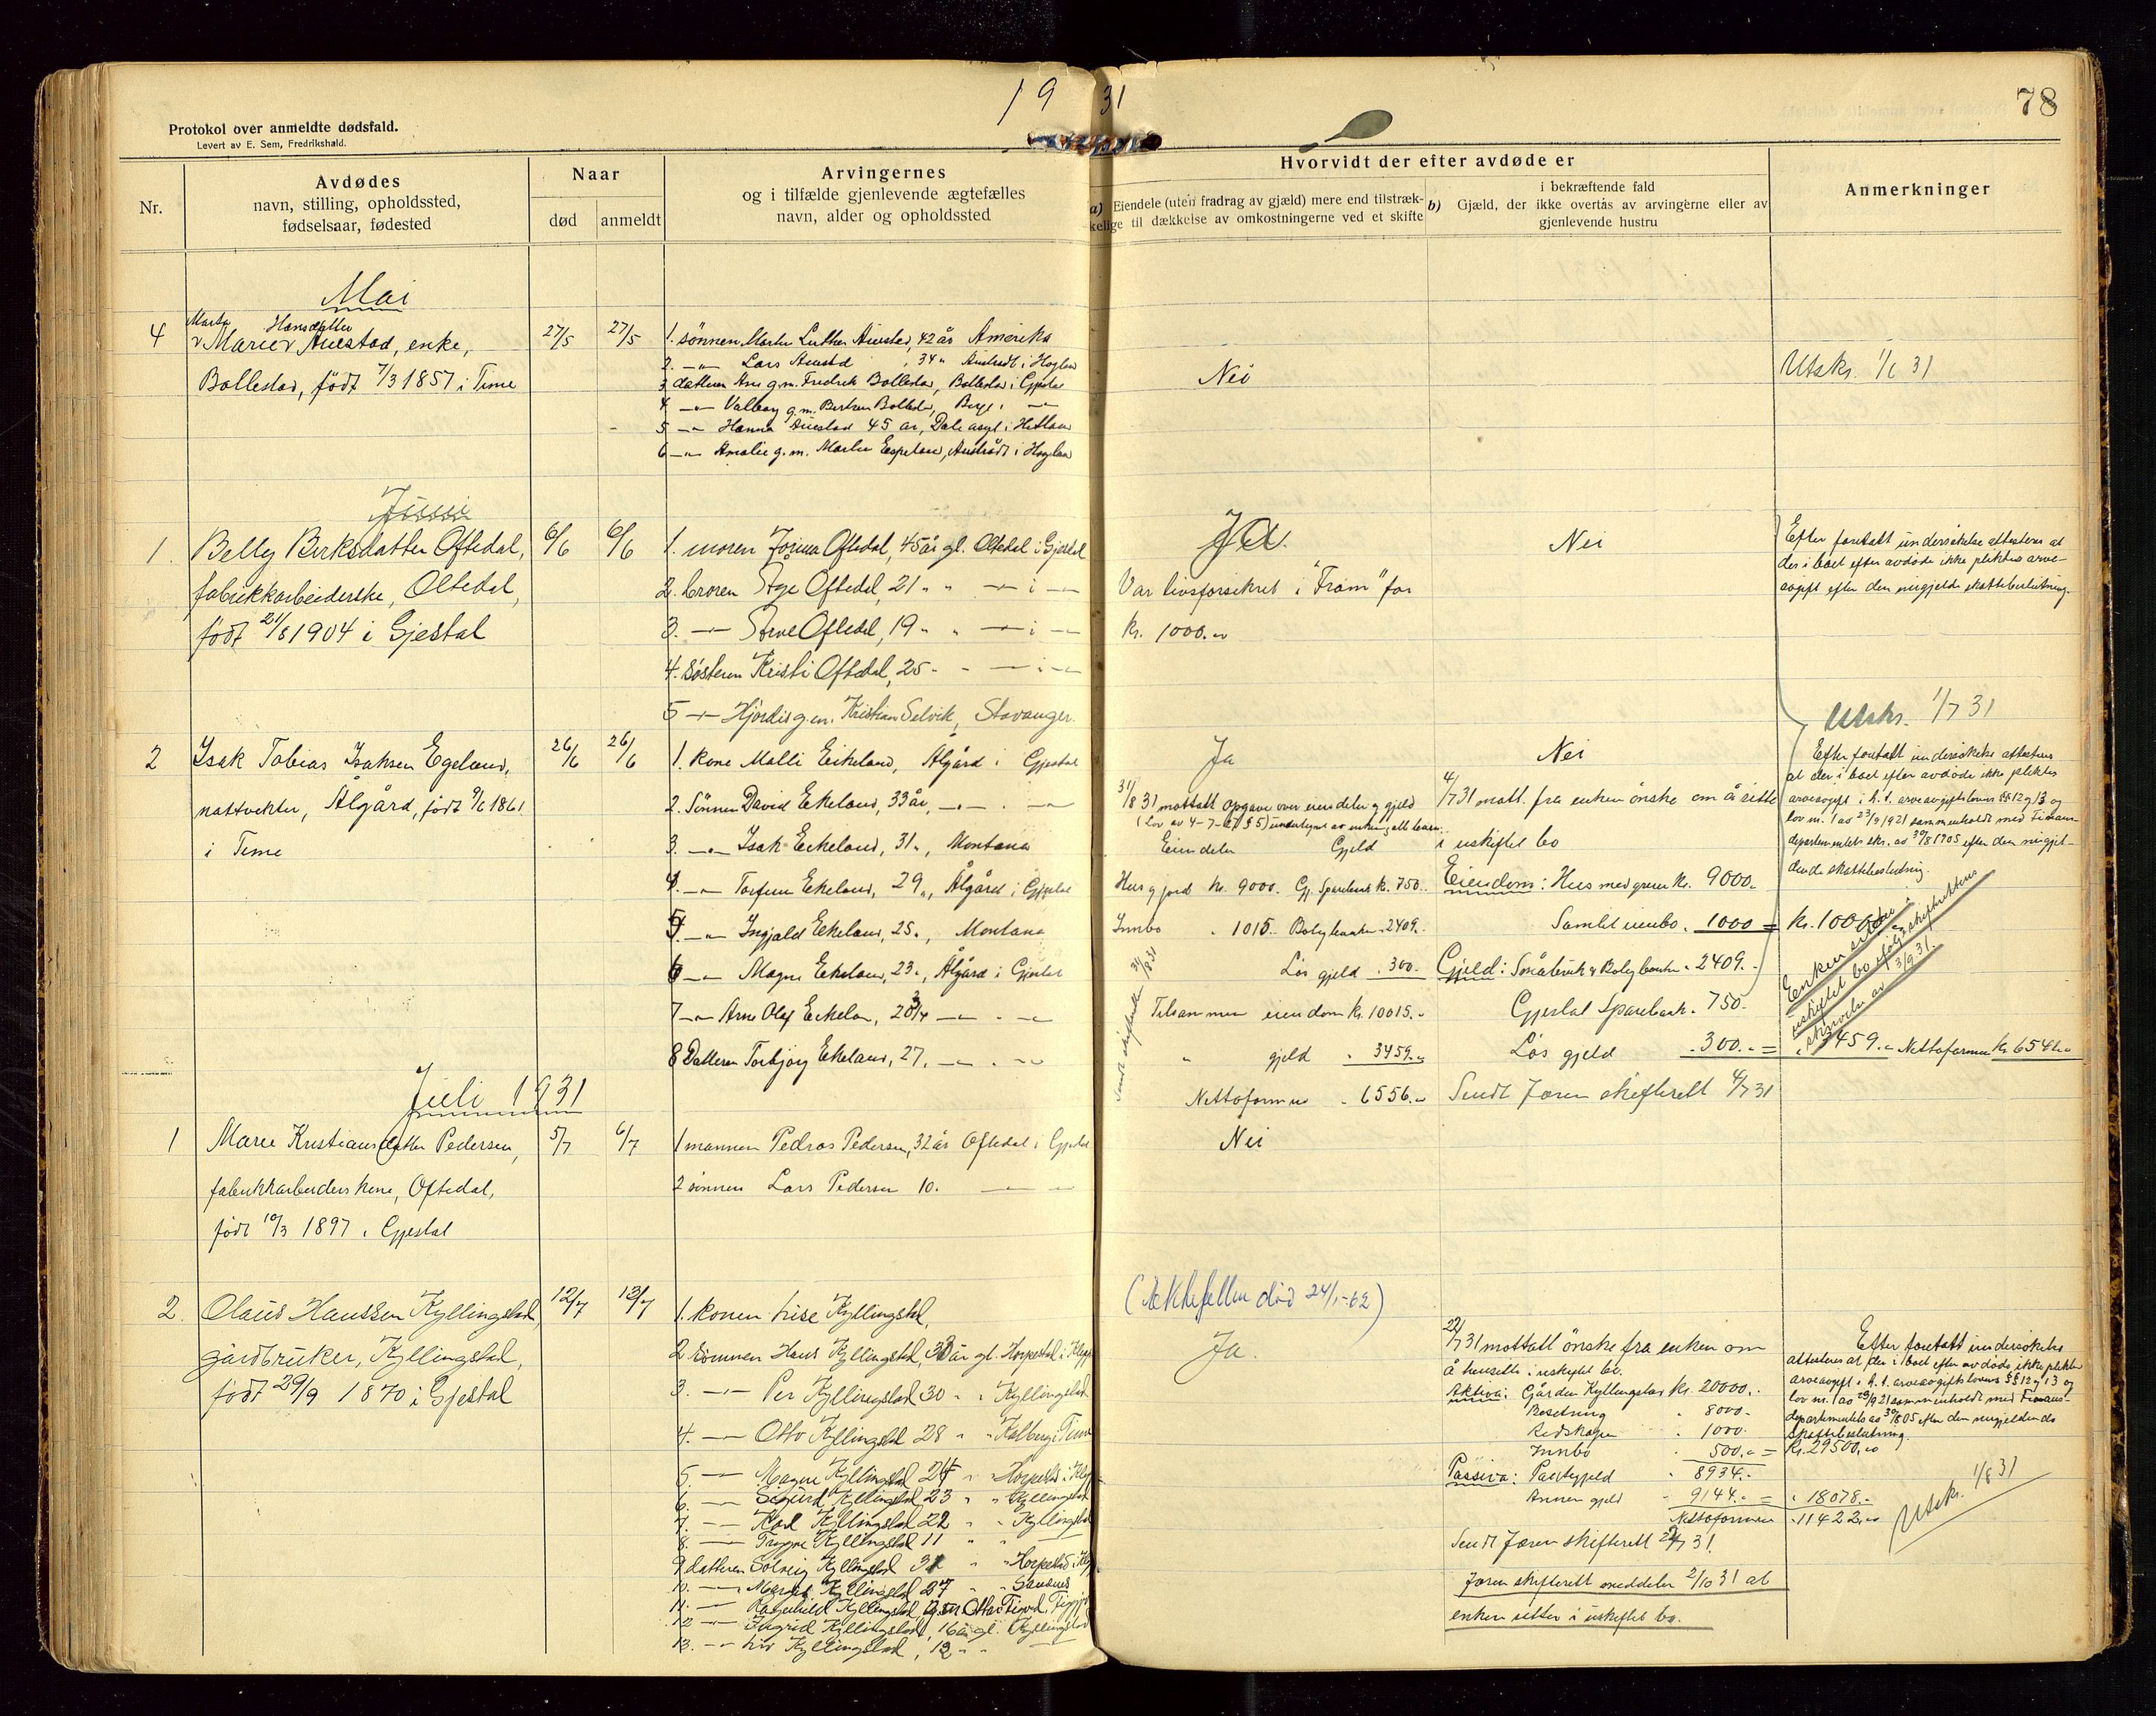 19 31
78
Protokol over anmeldte dødsfald.
Levert av E. Sem, Fredrikshald.
Nr.
Avdødes
navn, stilling, opholdssted,
fødselsaar, fødested
Naar
død
anmeldt
Arvingernes
og i tilfælde gjenlevende ægtefælles
navn, alder og opholdssted
Hvorvidt der efter avdøde er
a) Eiendele (uten fradrag av gjæld) mere end tilstræk-
kelige til dækkelse av omkostningerne ved et skifte
i bekræftende fald
b) Gjæld, der ikke overtas av arvingerne eller av
gjenlevende hustru
Anmerkninger
Mai
Marta Hansdatter
4 Marie Auestad, enke,
Bollestad, født 7/3 1857 i Time
27/5
27/5
1. sønnen Martin Luther Auestad, 42 år Amerika
2. -"- Lars Auestad, 34 " Austrått i Høyland
3 datteren Ane g.m. Fredrik Bollestad, Bollestad i Gjestal
4 -"- Valborg g.m. Bertran Bollestad, Berge i -"-
5 -"- Hanna Auestad 45 år, Dale asyl i Hetland
6 -"- Amalie g.m. Martin Espeland, Austrått i Høyland
Nei
Utskr. 1/6 31
Juni
1. Belly Berksdatter Oftedal,
fabrikkarbeiderske, Oltedal,
født 21/8 1904 i Gjestal
6/6
6/6
1. moren Jorina Oftedal, 45 år gl. Oltedal i Gjestal
2. broren Åge Oftedal, 21 " " -"- i -"-
3. -"- Arne Oftedal, 19 " " -"- i -"-
4. søsteren Kristi Oftedal, 25 - " -"- i -"-
5 -"- Hjørdis g.m. Kristian Selvik, Stavanger.
Ja.
Var livsforsikret i "Fram" for
kr. 1000.-
Nei
Efter foretatt undersøkelse attesteres at
der i boet efter avdøde ikke pliktes arve-
avgift efter den nugjeldende skattebeslutning.
Utskr. 1/7 31
2 Isak Tobias Isaksen Egeland,
nattvekter, Ålgård, født 9/6 1861
i Time
26/6
26/6
1. kone Malli Eikeland, Ålgård i Gjestal
2. Sønnen David Eikeland, 33 år, -"- . -"-
3. -"- Isak Eikeland, 31 ", Montana
4. -"- Torfinn Eikeland, 29 ", Ålgård i Gjestal
5. -"- Ingjald Eikeland, 25 ", Montana
6 -"- Magne Eikeland, 23 ", Ålgård i Gjestal
7 -"- Arne Olaf Eikeland, 20 3/4 -"- . -"-
8 Datteren Torbjørg Eikeland, 27, -"- . -"-
Ja
31/8 31 mottatt opgave over eiendeler og gjeld
(lov av 4-7-27 § 5) undertegnet av enken og alle barn.
Eiendeler Gjeld
Hus og jord kr. 9000. Gj. Sparebank kr. 750.-
Innbo " 1015.- Boligbanken " 2409.-
Løs gjeld . 300.-
Tilsammen eiendom kr. 10015.-
" gjeld . 3459.-
Nettoformue . 6556.-
Sendt skifterett 31/8 31
Nei
4/7 31 mott. fra enken ønske om å sitte
i uskiftet bo
Eiendom: Hus med grunn kr. 9000.
Samlet innbo . 1000 = kr. 10000
Gjeld: Småbruk & Boligbanken " 2409.-
Gjestal Sparebank . 750.-
Løs gjeld . 300.- = " 3459.- Nettoformue kr 6541.-
Sendt Jæren skifterett 4/7 31
Efter foretatt undersøkelse attesteres
at der i boet efter avdøde ikke pliktes
arveavgift i h.t. arveavgiftslovens §§ 12 og 13 og
lov nr. 1 av 29/9 1921 sammenholdt med Finans-
departementets skr. av 30/8 1905 efter den nugjel-
dende skattebeslutning.
Enken sitter i
uskiftet bo ifølge skifterettens
skrivelse av 3/9 31.
Juli 1931
1 Marie Kristiansdatter Pedersen,
fabrikkarbeiders kone, Oftedal,
født 10/3 1897 i Gjestal
5/7
6/7
1 mannen Pedros Pedersen, 32 år Oftedal i Gjestal
2 sønnen Lars Pedersen 10. -"- -"-
Nei
2. Olaus Hanssen Kyllingstad,
gårdbruker, Kyllingstad,
født 29/9 1870 i Gjestal
12/7
13/7
1. konen Lise Kyllingstad,
2 sønnen Hans Kyllingstad, 33 år gl. Horpestad i Klepp
3. -"- Per Kyllingstad 30 " " Kyllingstad
4. -"- Otto Kyllingstad 28 " " Kalberg i Time
5. -"- Magne Kyllingstad 24 " " Horpestad i Klepp
6. -"- Sigurd Kyllingstad 23 " " Kyllingstad
7. -"- Karl Kyllingstad 22 " " Kyllingstad
8. -"- Trygve Kyllingstad 11 " "
9 datteren Solveig Kyllingstad 31 " " Horpestad i Klepp
10. -"- Margit Kyllingstad 27 " " Sandnes
11. -"- Ragnhild Kyllingstad g.m. Otto Figved, Figgjo
12 -"- Ingrid Kyllingstad, 16 år gl. Kyllingstad
13. -"- Liv Kyllingstad, 12 " " -"-
(Ektefellen død 24/1-62)
Ja.
22/7 31 mottatt ønske fra enken om
å hensitte i uskiftet bo.
Aktiva: Gården Kyllingstad kr. 20000.-
Besetning " 8000.-
Redskaper " 1000.-
Innbo " 500.- = Kr. 29500.-
Passiva: Pantegjeld " 8934.-
Annen gjeld " 9144.- = " 18078.-
Nettoformue " 11422.-
Sendt Jæren skifterett 22/7 31.
Jæren skifterett meddeler 2/10 31 at
enken sitter i uskiftet bo.
Efter foretatt undersøkelse
attesteres at der i boet efter avdøde ikke pliktes
arveavgift i h.t. arveavgiftslovens §§ 12 og 13 og
lov nr. 1 av 29/9 21 sammenholdt med Finans-
departementets av 30/8 05 efter den nugjeldende
skattebeslutning.
Utskr. 1/8 31